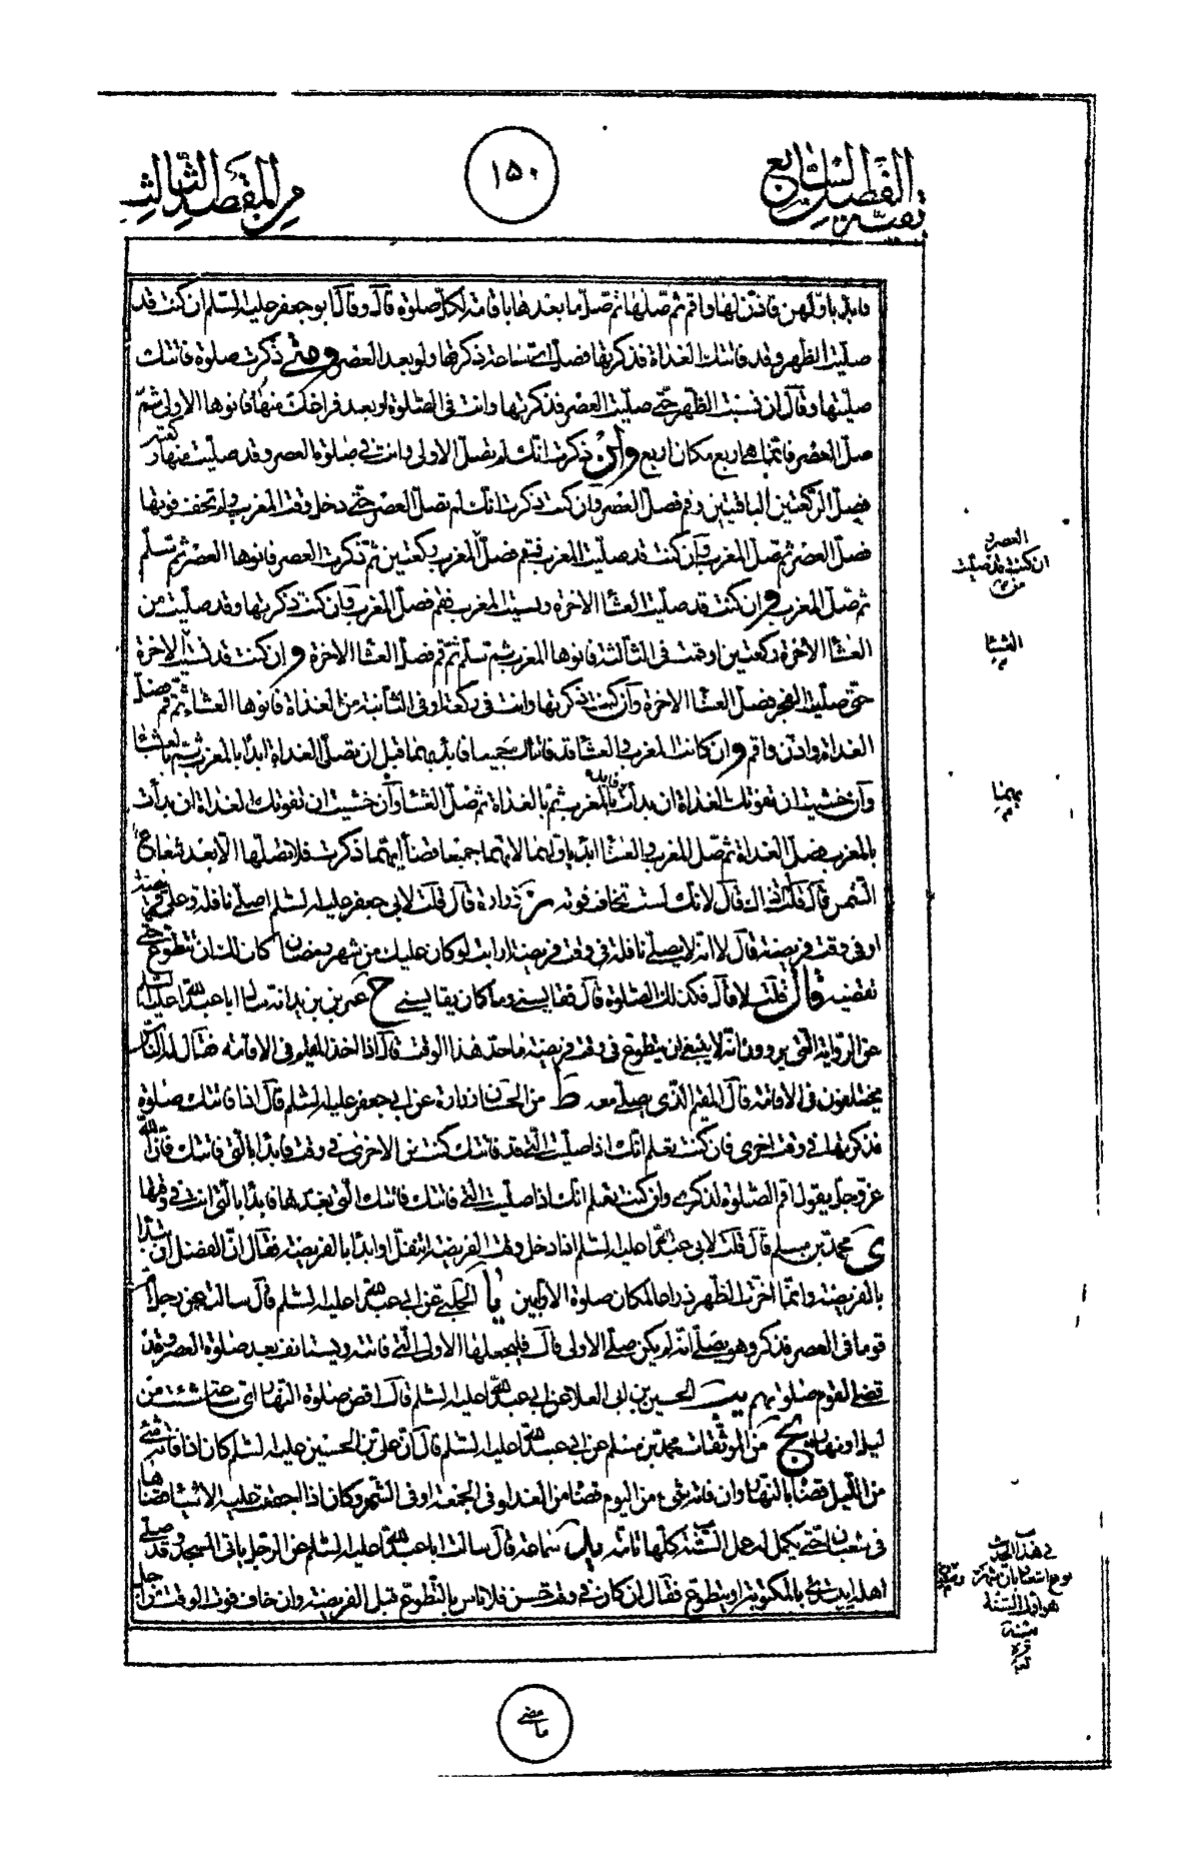 بقية الفصل السابع
١٥٠
من المقصد الثالث
فابدأ باولهن فاذن لها واقم ثم صلها ثم صل ما بعدها باقامة لكل صلوة قال وقال ابو جعفر عليه السلم ان كنت قد
صليت الظهر وقد فاتتك الغداة فذكرتها فصل اى ساعة ذكرتها ولو بعد العصر ومتى ذكرت صلوة فاتتك
صليتها وقال ان نسيت الظهر حتى صليت العصر فذكرتها وانت فى الصلوة او بعد فراغك منها فانوها الاولى ثم
صل العصر فانما هى اربع مكان اربع وان ذكرت انك لم تصل الاولى وانت فى صلوة العصر وقد صليت منها ركعتين
فصل الركعتين الباقيتين وقم فصل العصر وان كنت ذكرت انك لم تصل العصر حتى دخل وقت المغرب ولم تخف فوتها
فصل العصر ثم صل المغرب وان كنت قد صليت المغرب فقم فصل المغرب ركعتين ثم ذكرت العصر فانوها العصر ثم تسلم
ثم صل المغرب وان كنت قد صليت العشا الاخرة ونسيت المغرب فقم فصل المغرب وان كنت ذكرتها وقد صليت من
العشا الاخرة ركعتين او قمت فى الثالثة فانوها المغرب ثم تسلم ثم قم فصل العشا الاخرة وان كنت قد نسيت الاخرة
حتى صليت الفجر فصل العشا الاخرة وان كنت ذكرتها وانت فى ركعة او فى الثانية من الغداة فانوها العشاء ثم قم فصل
الغداة واذن واقم وان كانت المغرب والعشا قد فاتتاك جميعا فابدء بهما قبل ان تصلى الغداة ابدأ بالمغرب ثم بالعشا
وان خشيت ان تفوتك الغداة ان بدأت بهما فابدء بالمغرب ثم بالغداة ثم صل العشا وان خشيت ان تفوتك الغداة ان بدأت
بالمغرب فصل الغداة ثم صل المغرب والعشا ابدء باولهما لانهما جميعا قضأ ايهما ذكرت فلا تصلهما الا بعد شعاع
الشمس قال قلت لم ذاك قال لانك لست تخاف فوته ز زرارة قال قلت لابى جعفر عليه السلم اصلى نافلة وعلى فريضة
او فى وقت فريضة قال لا انه لا يصلى نافلة فى وقت فريضة ارايت لو كان عليك من شهر رمضان كان لك ان تتطوع حتى
تقضيه قال قلت لا قال فكذلك الصلوة قال فقايسنى وما كان يقايسنى ح عمر بن يزيد انه سال ابا عبد الله عليه السلم
عن الرواية التى يروون انه لا ينبغى ان يتطوع فى وقت فريضة ما حد هذا الوقت قال اذا اخذ المقيم فى الاقامة فقال له الناس
يختلفون فى الاقامة قال المقيم الذى يصلى معه ط من الحسان زرارة عن ابى جعفر عليه السلم قال اذا فاتتك صلوة
فذكرتها فى وقت اخرى فان كنت تعلم انك اذا صليت التى قد فاتتك كنت من الاخرى فى وقت فابدأ بالتى فاتتك فان الله
عز وجل يقول اقم الصلوة لذكرى وان كنت تعلم انك اذا صليت التى فاتتك فاتتك التى بعدها فابدأ بالتى انت فى وقتها
ى محمد بن مسلم قال قلت لابى عبد الله عليه السلم اذا دخل وقت الفريضة اتنفل او ابدأ بالفريضة فقال ان الفضل ان تبدأ
بالفريضة وانما اخرت الظهر ذراعا لمكان صلوة الاوابين يا الحلبى عن ابى عبد الله عليه السلم قال سالته عن رجل ام
قوما فى العصر فذكر وهو يصلى انه لم يكن صلى الاولى قال فليجعلها الاولى التى فاتته ويستانف بعد صلوة العصر وقد
قضى القوم صلوتهم يب الحسين بن ابى العلا عن ابى عبد الله عليه السلم قال اقض صلوة النهار اى ساعة شئت من
ليل او نهار يج من الموثقات محمد بن مسلم عن ابى عبد الله عليه السلم قال ان على بن الحسين عليه السلم كان اذا فاته شئ
من الليل قضا بالنهار وان فاته شئ من اليوم قضا من الغد او فى الجمعة او فى الشهر وكان اذا اجتمعت عليه الاشيا قضاها
فى شعبان حتى يكمل له عمل السنة كلها تامة يد سماعة قال سالت ابا عبد الله عليه السلم عن الرجل ياتى المسجد وقد صلى
اهله ايبتدى بالمكتوبة او يتطوع فقال ان كان فى وقت حسن فلا باس بالتطوع قبل الفريضة وان خاف فوت الوقت من اجل
العصر و
ان كنت قد صليت
من
العشا
بهما
فى هذا الحديث
نوع اشعار بان شهر
هو اول السنة
منه
ما مضى